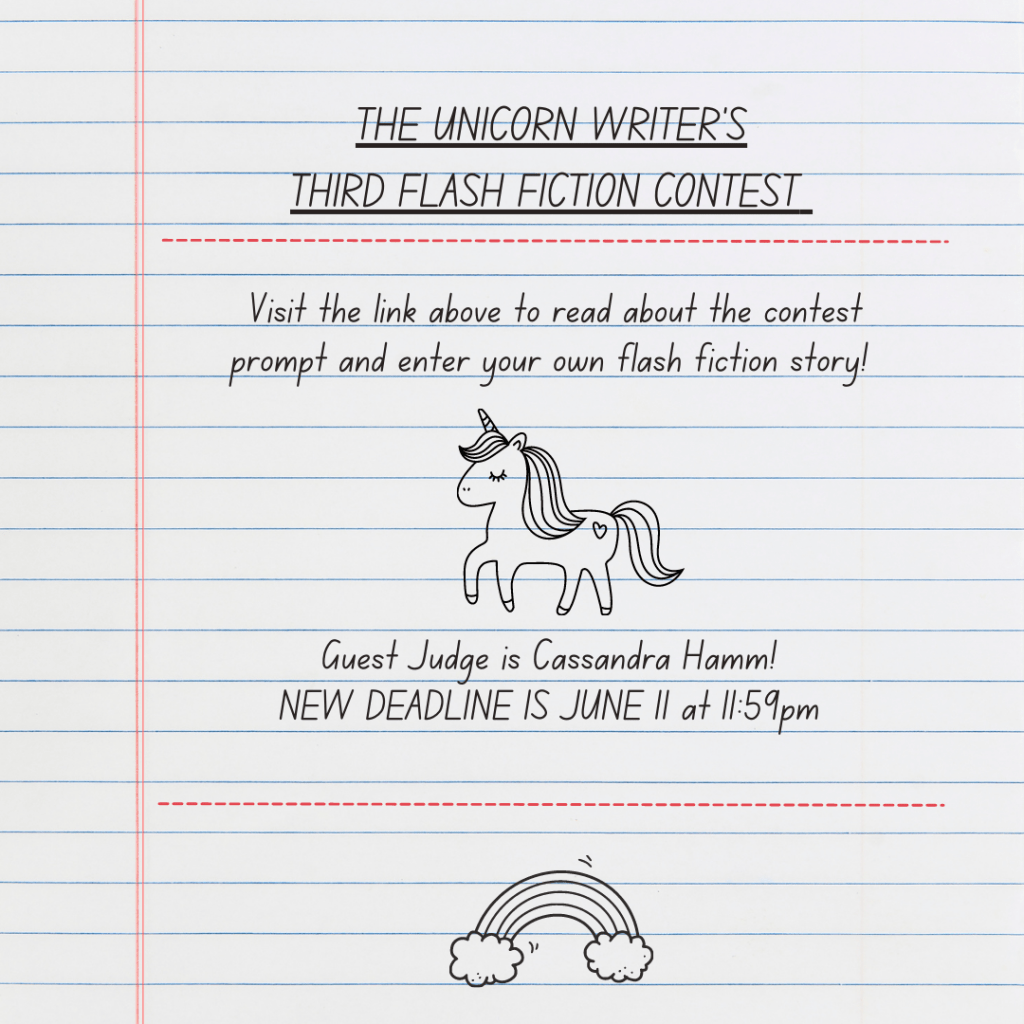 THE UNICORN WRITER'S
THIRD FLASH FICTION CONTEST
Visit the link above to read about the contest
prompt and enter your own flash fiction story!
Guest Judge is Cassandra Hamm!
NEW DEADLINE IS JUNE 11 at 11:59pm